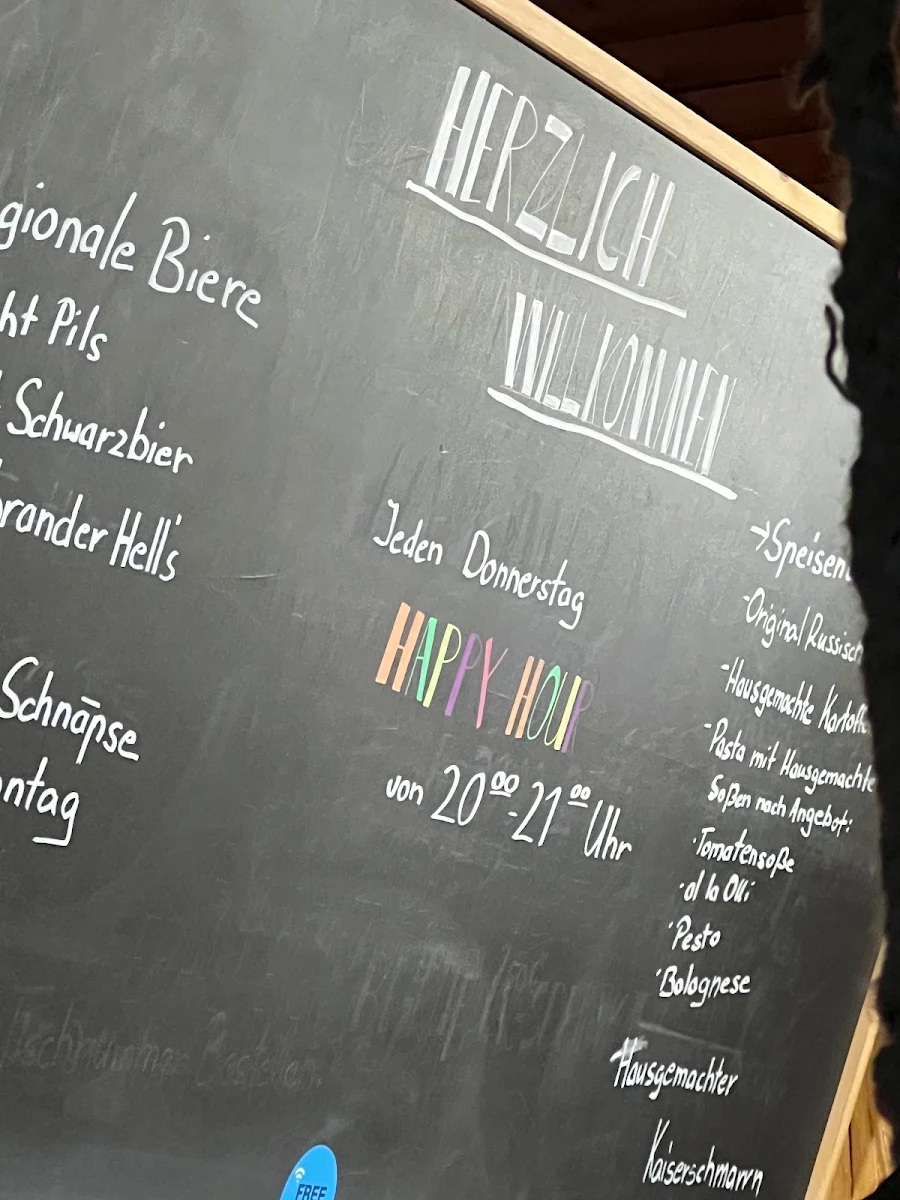 gionale Biere
ht Pils
Schwarzbier
rander Hell's
Schnäpse
ntag
HERZLICH
WILLKOMMEN
Jeden Donnerstag
HAPPY HOUR
von 20⁰⁰-21⁰⁰ Uhr
→Speisen
-Original Russisch
-Hausgemachte Kartoff
-Pasta mit Hausgemachte
Soßen nach Angebot:
·Tomatensoße
·al la Olli
·Pesto
·Bolognese
Hausgemachter
Kaiserschmarrn
FREE